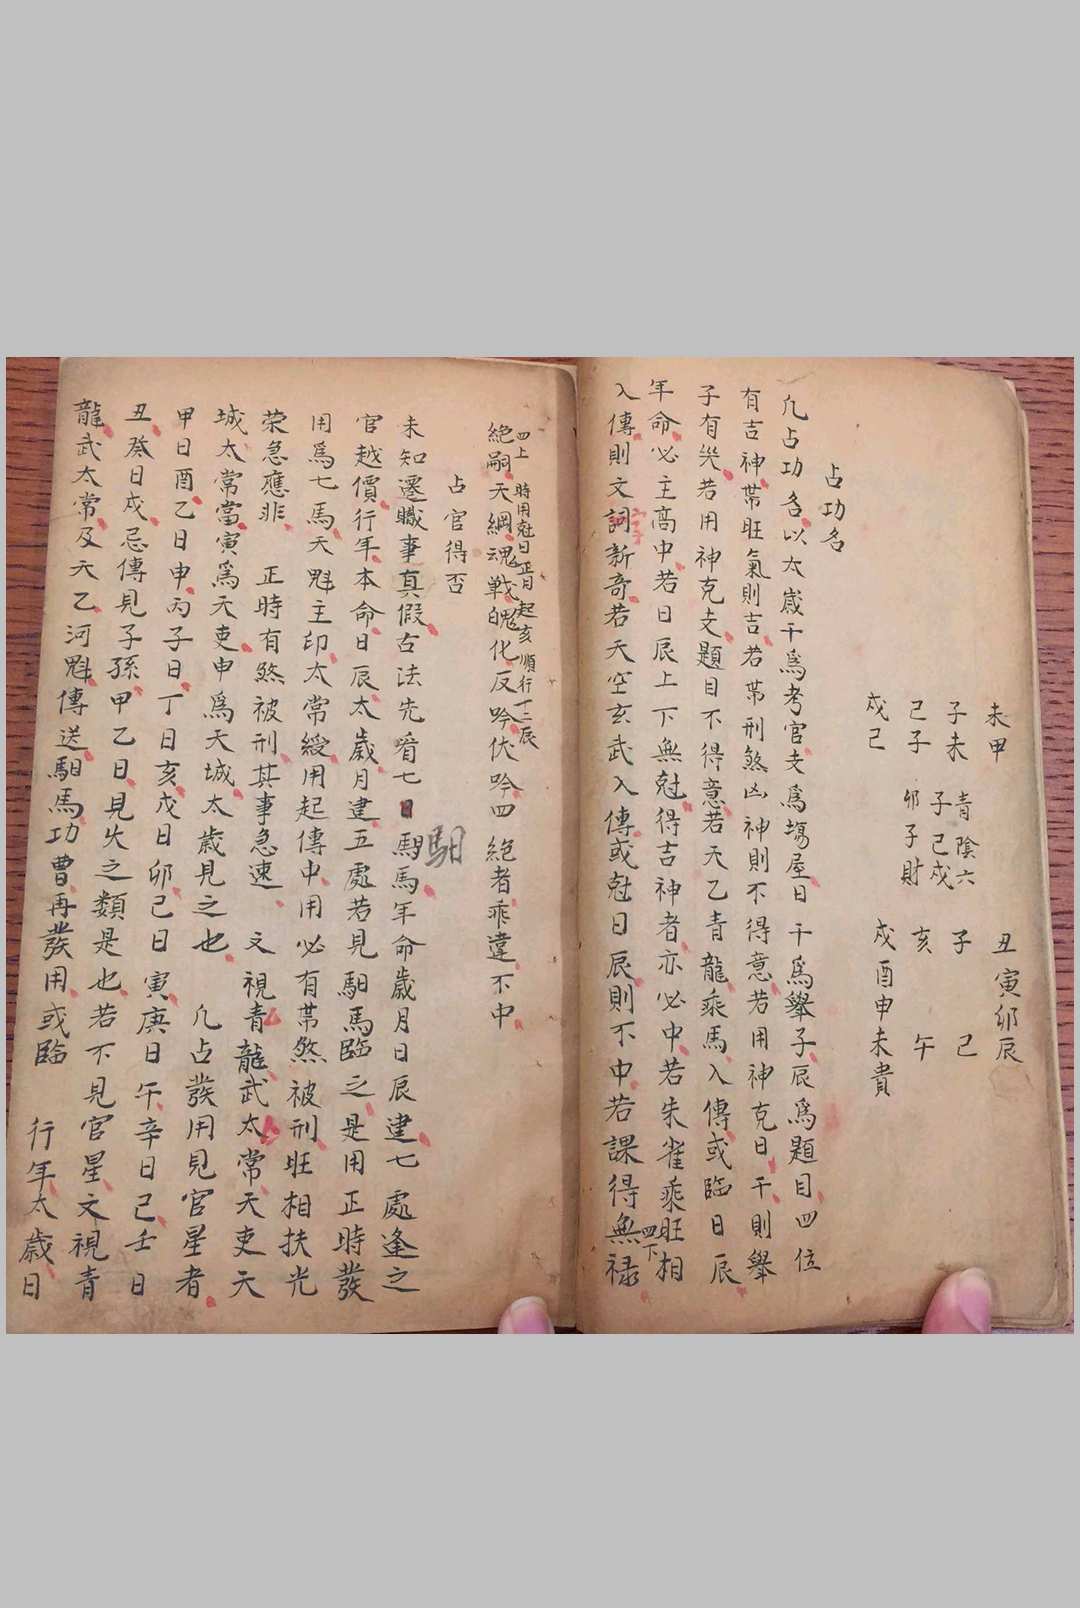 未甲
子未
己子
戌己
青陰六
子己戌
卯子財
丑寅卯辰
子 己
亥 午
戌酉申未貴
占功名
凢占功名以太歲干爲考官支爲塲屋日干爲舉子辰爲題目四位
有吉神帶旺氣則吉若帶刑煞凶神則不得意若用神克日干則舉
子有灾若用神克支題目不得意若天乙青龍乘馬入傳或臨日辰
年命必主高中若日辰上下無尅得吉神者亦必中若朱雀乘旺相
入傳則文詞新奇若天空玄武入傳或尅日辰則不中若課得無禄
字
四下
四上
時用尅日正日起亥順行十二辰
絶嗣天綱魂戰魄化反吟伏吟四絶者乖違不中
占官得否
未知遷職事真假古法先看七日馹馬年命歲月日辰建七處逢之
馹
官越價行年本命日辰太歲月建五處若見馹馬臨之是用正時發
用爲七馬天魁主印太常綬用起傳中用必有帶煞被刑旺相扶光
榮急應非 正時有煞被刑其事急速 文視青龍武太常天吏天
城太常當寅爲天吏申爲天城太歲見之也 凢占發用見官星者
甲日酉乙日申丙子日丁日亥戊日卯己日寅庚日午辛日己壬日
丑癸日戌忌傳見子孫甲乙日見火之類是也若不見官星文視青
龍武太常及天乙河魁傳送馹馬功曹再發用或臨 行年太歲日